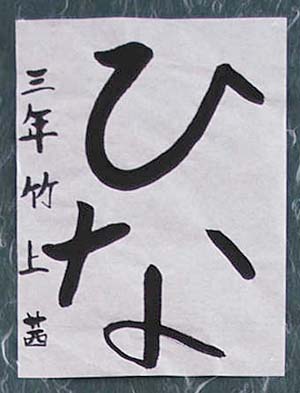 ひな
三年竹上茜